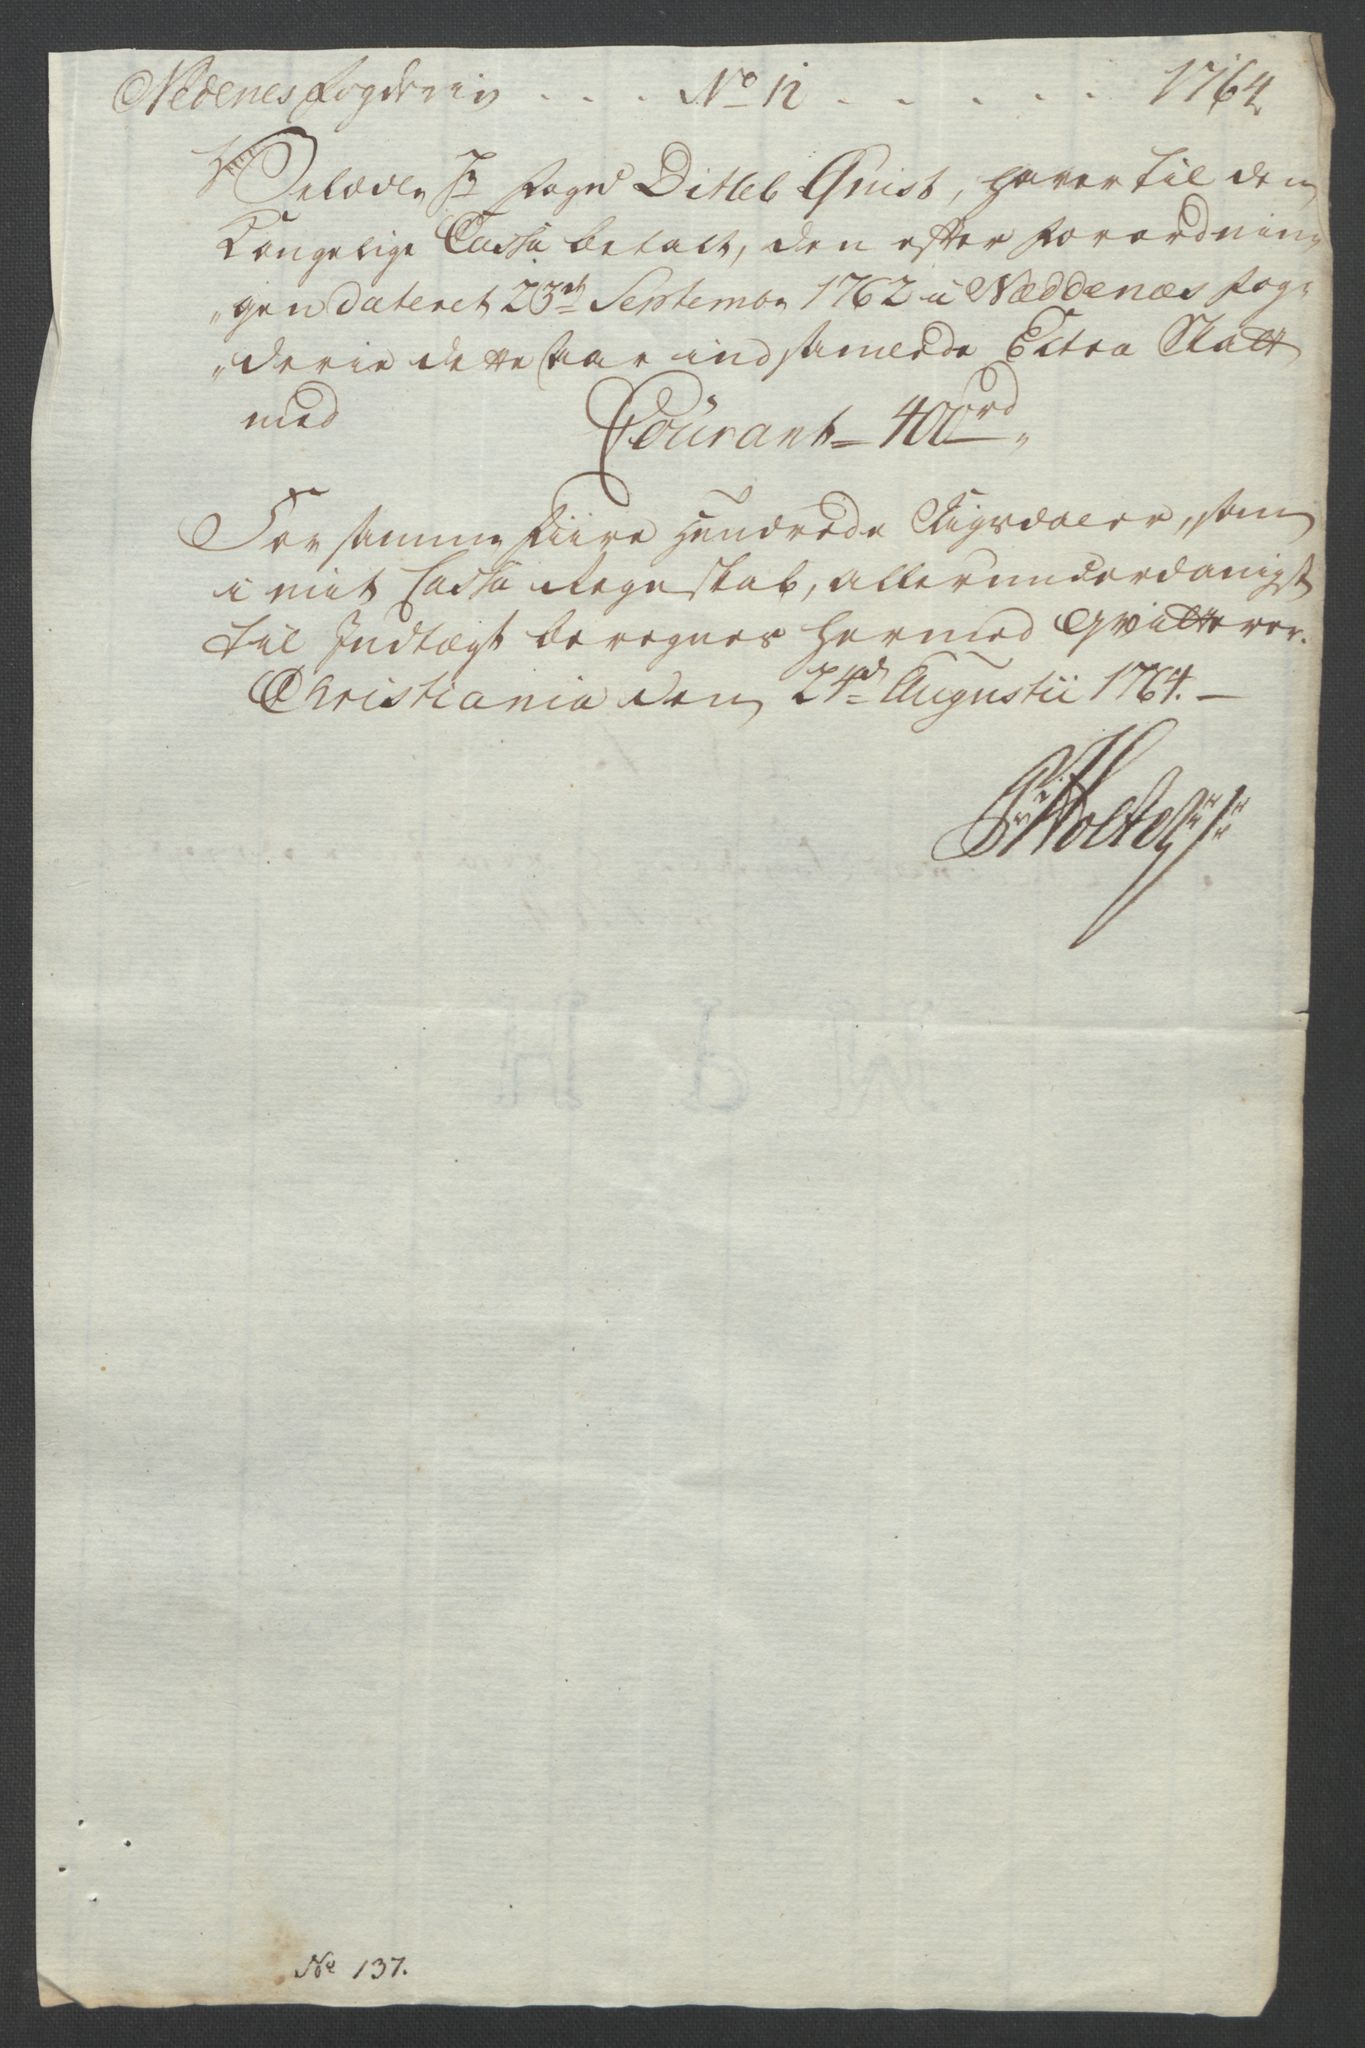 Nedenes Fogderie . . . No 12 . . . . . . 1764
Velædle Hr Foged Ditleb Qvist, haver til den
Kongelige Cassa betalt, den efter Forordnin„
„gen dateret 23de Septembr 1762 i Næddenæs Fog„
„derie dette Aar indsamlede Extra Skatt
med Courant – 400 rd„
For samme Fiire Hundrede Rigsdaler, som
i mit Cassa Regnskab, allerunderdanigst
til Indtægt beregnes hermed qvitterer.
Christiania den 24de Augustii 1764. –
Holter
No 137.